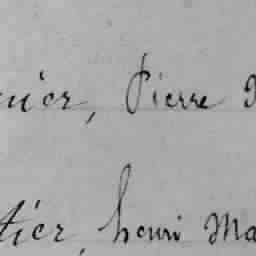 uier, Pierre
tier, henri Ma